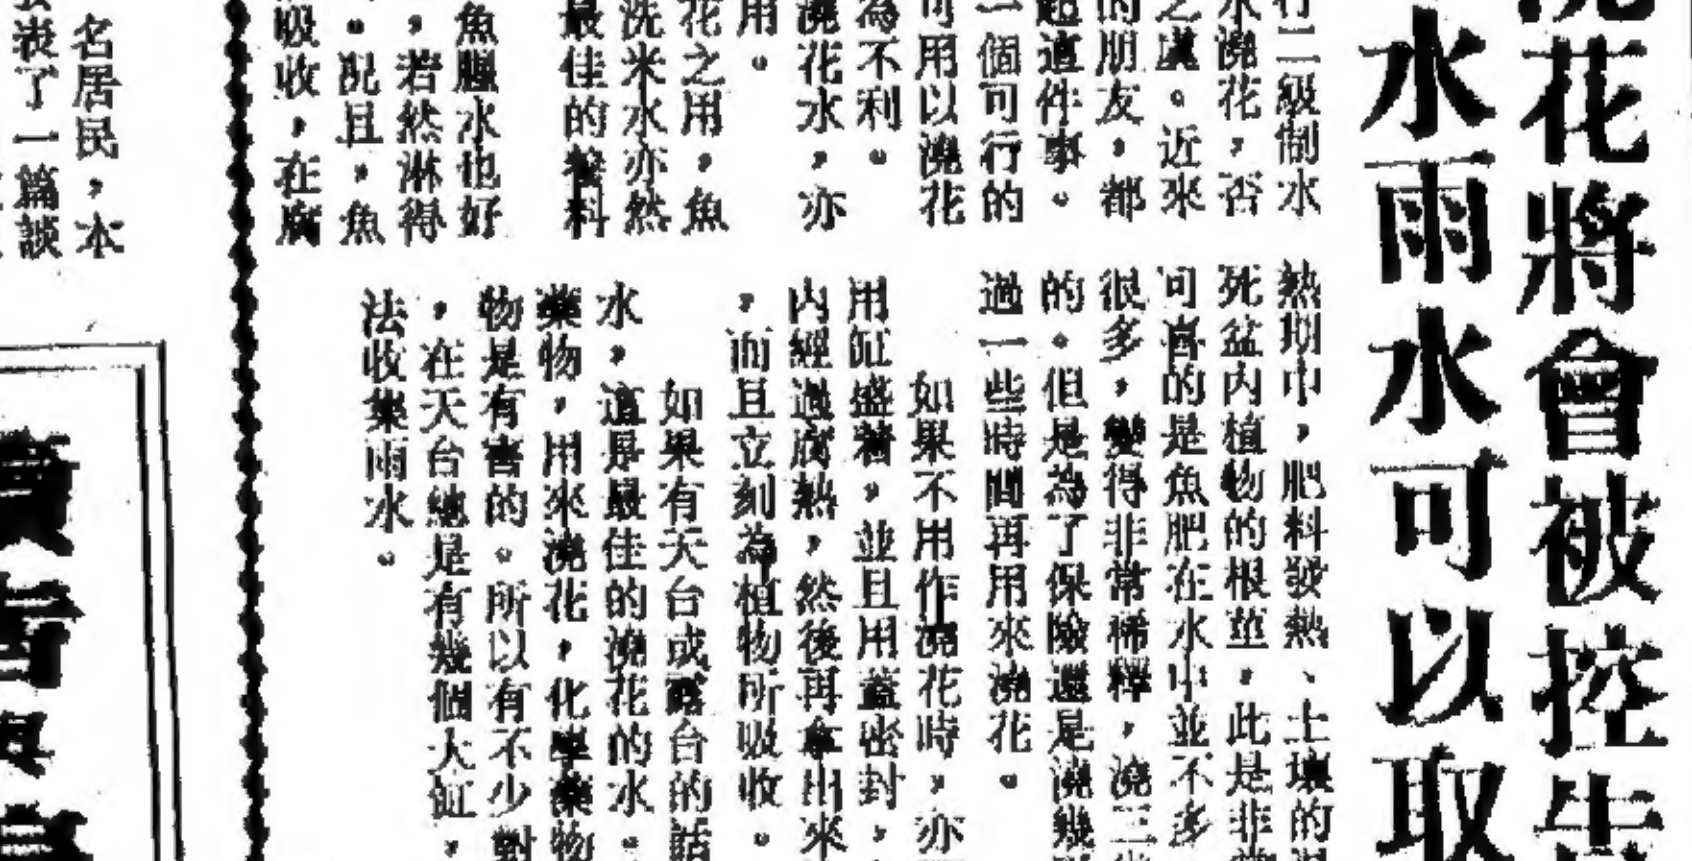 花將會被控告
水雨水可以取
行二級制水
水澆花，否
之虞。近來
的朋友，都
起這件事。
一個可行的
可用以澆花
為不利。
澆花水，亦
用。
花之用，魚
洗米水亦然
最佳的養料
魚腥水也好
，若然淋得
。況且，魚
吸收，在腐
熱期中，肥料發熱、土壤的
死盆內植物的根莖，此是非
可喜的是魚肥在水中並不多
很多，變得非常稀釋，澆三
的。但是為了保險還是澆幾
過一些時間再用來澆花。
如果不用作澆花時，亦
用缸盛着，並且用蓋密封，
內經過腐熱，然後再拿出來
，而且立刻為植物所吸收。
如果有天台或露台的話
水，這是最佳的澆花的水。
藥物，用來澆花，化學藥物
物是有害的。所以有不少對
，在天台總是有幾個大缸，
法收集雨水。
名居民，本
表了一篇談